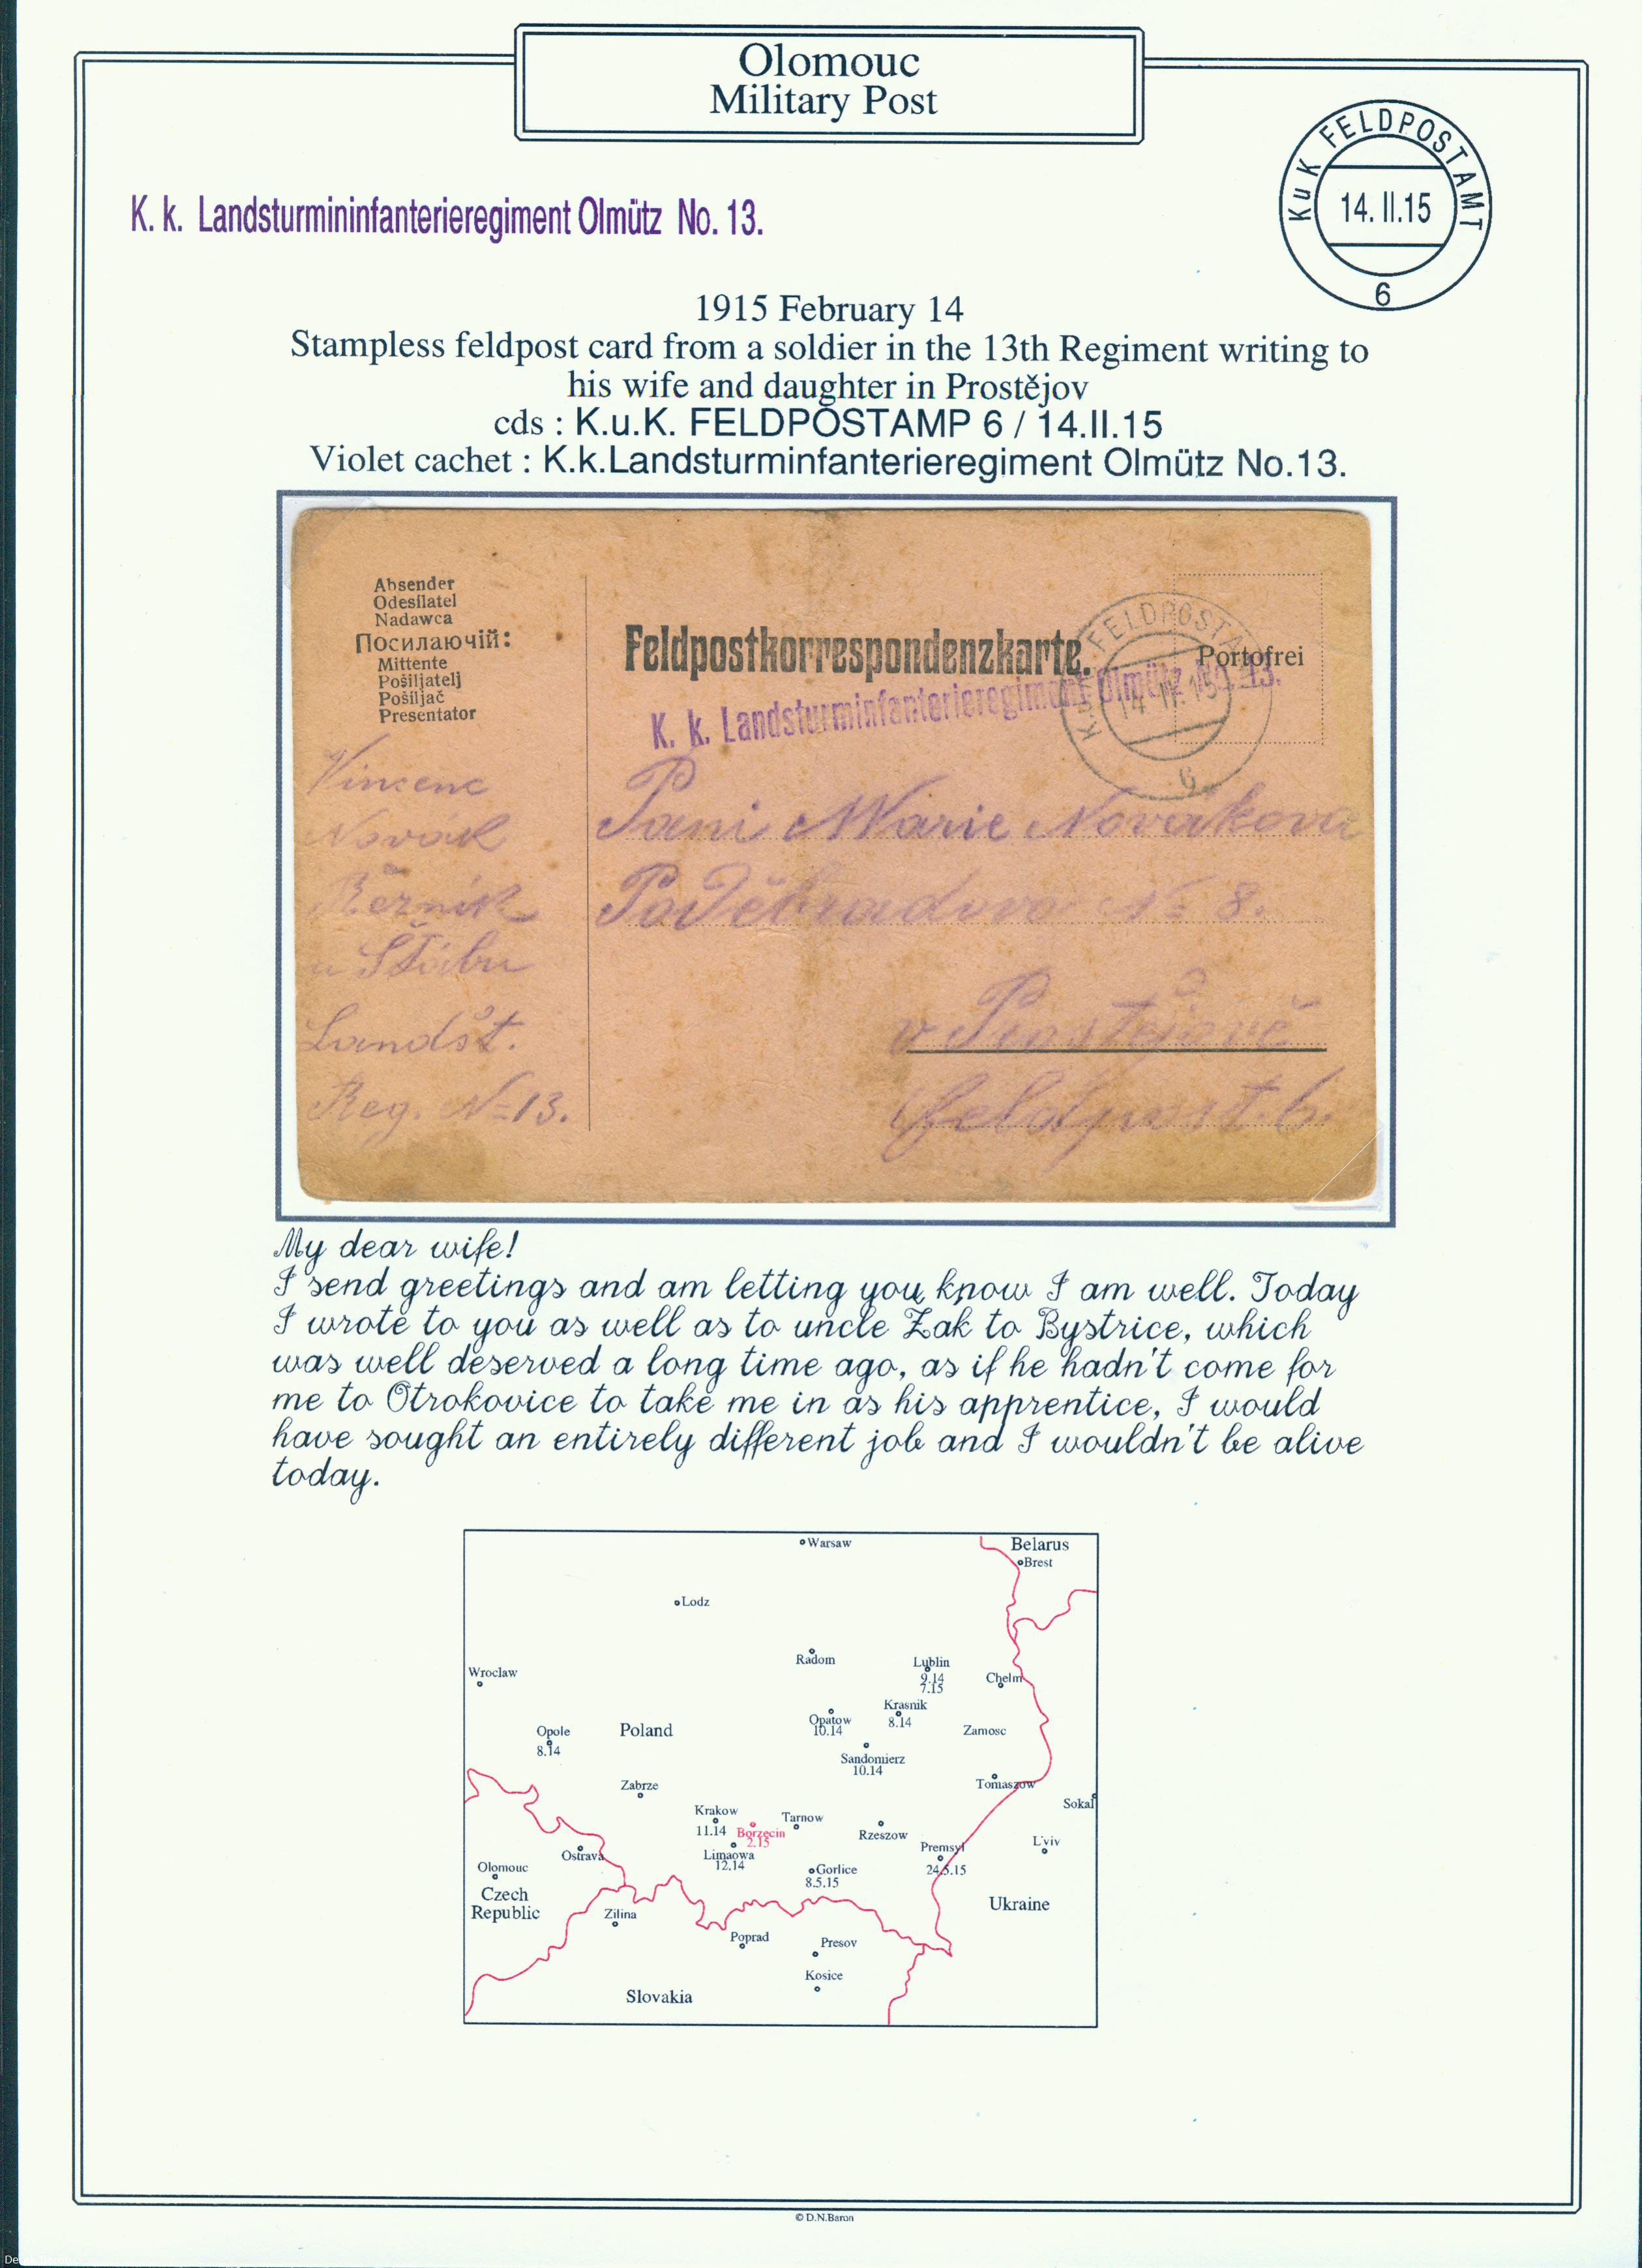 Olomouc
Military Post
K.k. Landsturmininfanterieregiment Olmütz No. 13.
KuK FELDPOSTAMT
14. II.15
6
1915 February 14
Stampless feldpost card from a soldier in the 13th Regiment writing to
his wife and daughter in Prostějov
cds : K.u.K. FELDPOSTAMP 6 / 14.II.15
Violet cachet : K.k.Landsturminfanterieregiment Olmütz No.13.
Absender
Odesílatel
Nadawca
Посилаючій:
Mittente
Pošiljatelj
Pošiljač
Presentator
Feldpostkorrespondenzkarte.
Portofrei
K.u.K. FELDPOSTA
14 II 15
6
K. k. Landsturminfanterieregiment Olmütz No. 13.
Vincenc
Novák
Řezník
u Štábu
Landšt.
Reg. No 13.
Paní Marie Nováková
Poděbradova No 8.
v Prostějově
Feldpost. 6.
My dear wife!
I send greetings and am letting you know I am well. Today
I wrote to you as well as to uncle Zak to Bystrice, which
was well deserved a long time ago, as if he hadn't come for
me to Otrokovice to take me in as his apprentice, I would
have sought an entirely different job and I wouldn't be alive
today.
Warsaw
Belarus
Brest
Lodz
Radom
Lublin
9.14
7.15
Wroclaw
Chelm
Krasnik
8.14
Opatow
10.14
Opole
8.14
Poland
Zamosc
Sandomierz
10.14
Zabrze
Tomaszow
Sokal
Krakow
11.14
Borzecin
2.15
Tarnow
Rzeszow
L'viv
Premsyl
24.5.15
Limaowa
12.14
Ostrava
Gorlice
8.5.15
Olomouc
Czech
Republic
Ukraine
Zilina
Poprad
Presov
Kosice
Slovakia
© D.N.Baron